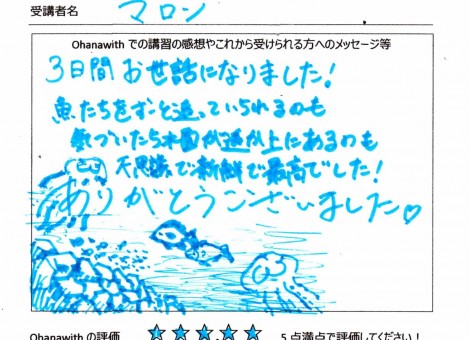 受講者名 マロン
Ohanawith での講習の感想やこれから受けられる方へのメッセージ等
3日間お世話になりました!
魚たちをずっと追っていられるのも
気づいたら水面が遥か上にあるのも
不思議で新鮮で最高でした!
ありがとうございました♡
Ohanawith の評価 ★★★★★ 5点満点で評価してください!